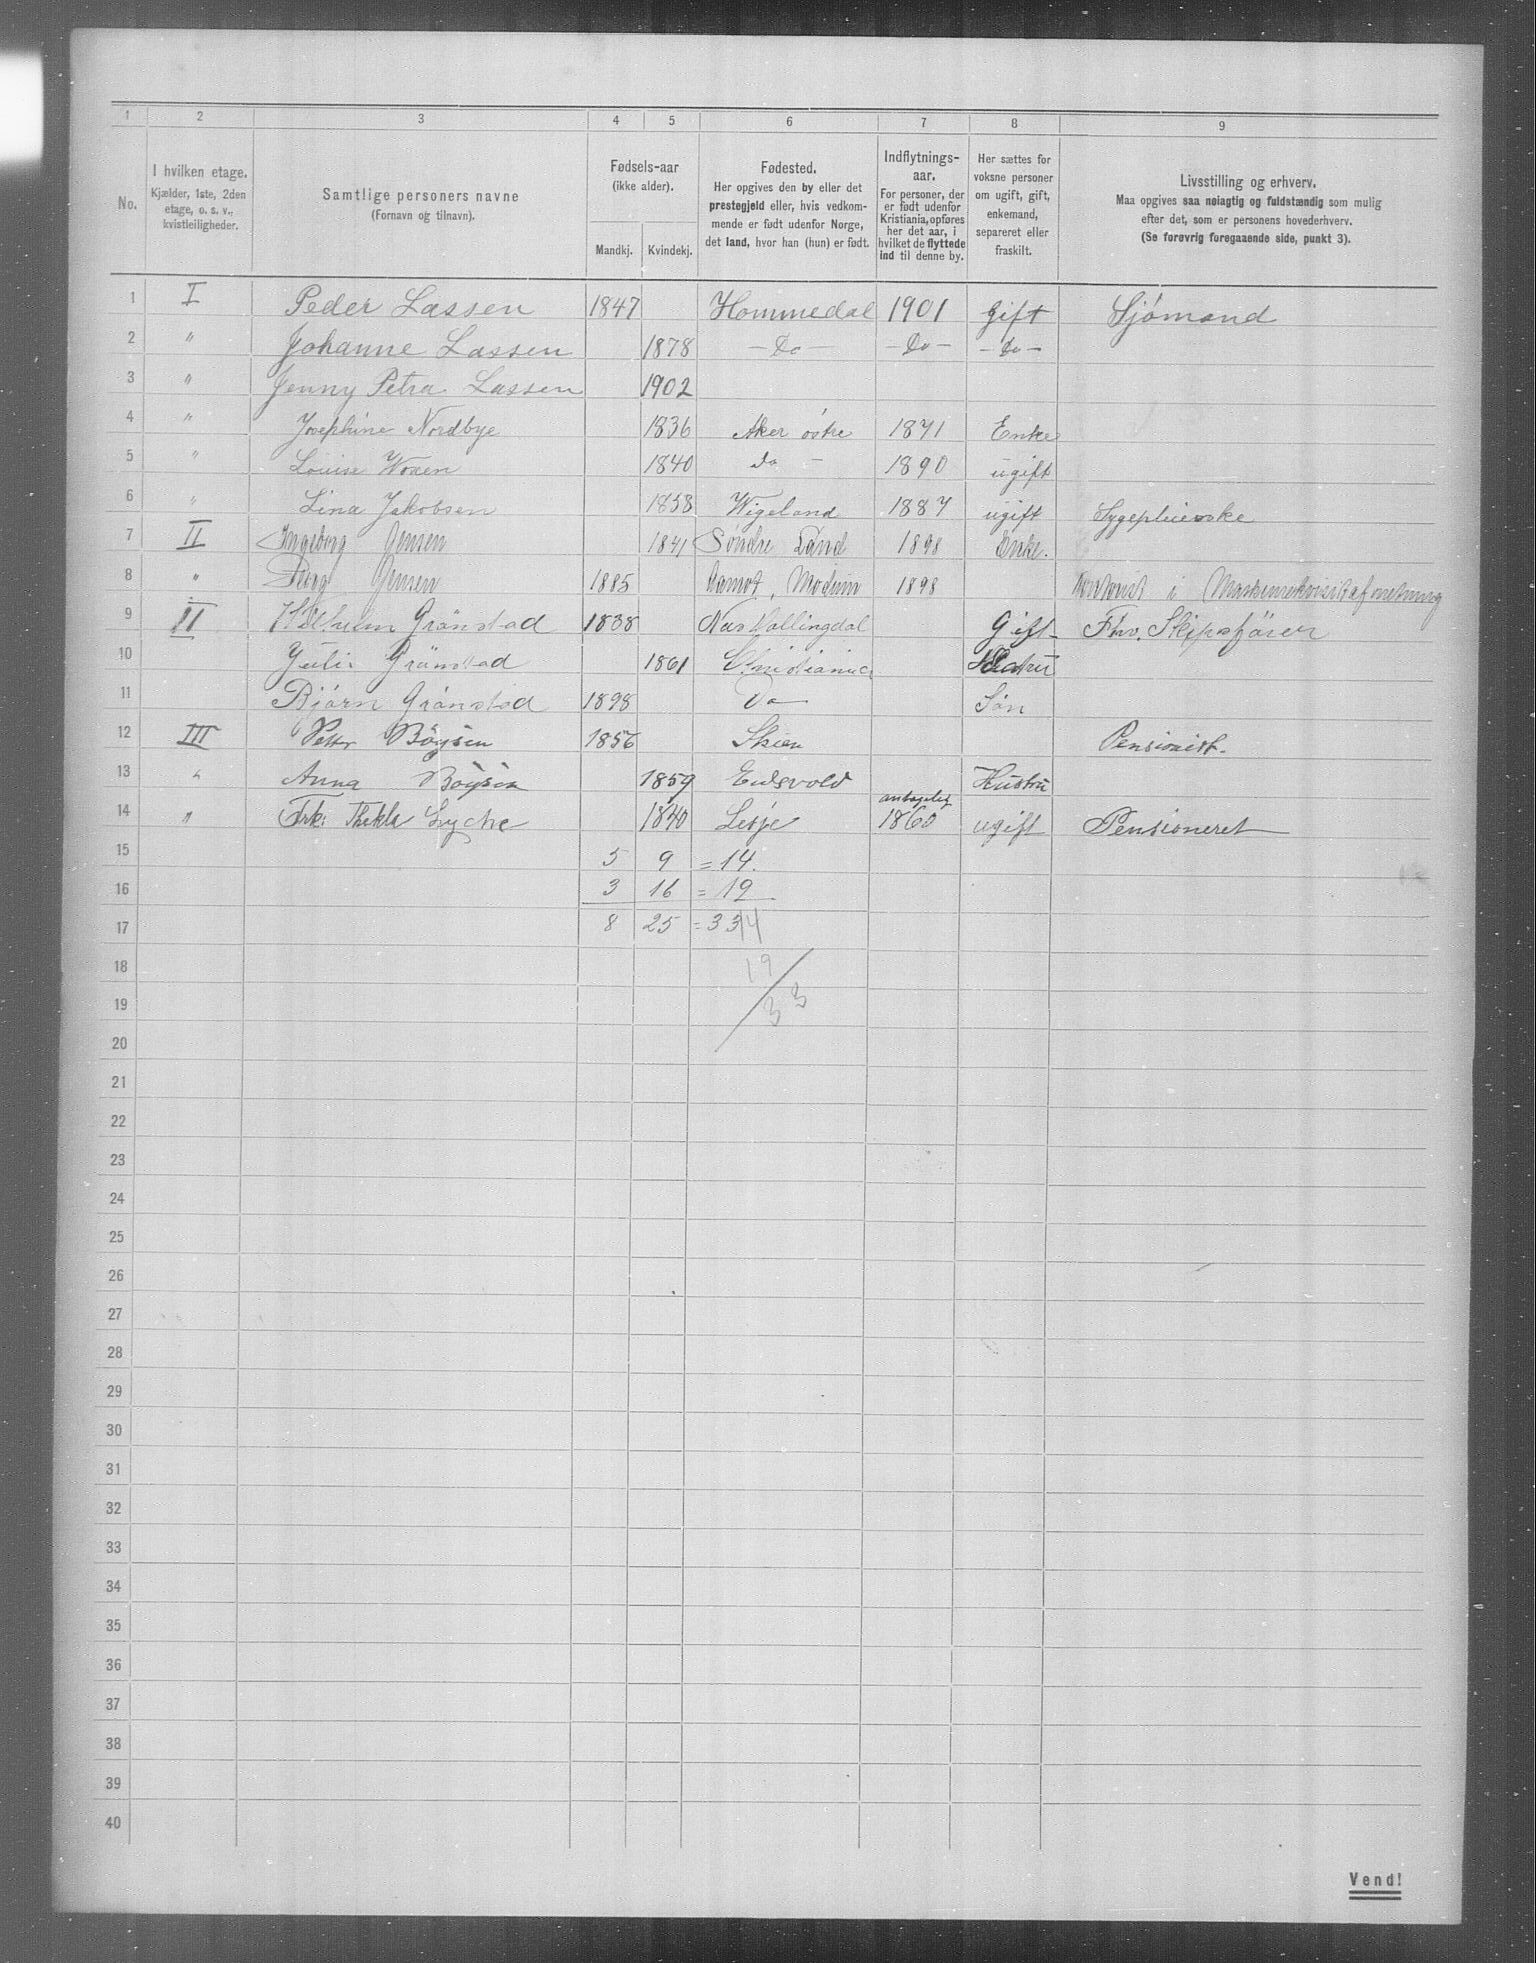 1 2 3 4 5 6 7 8 9
No.
I hvilken etage.
Kjælder, 1ste, 2den
etage, o. s. v.,
kvistleiligheder.
Samtlige personers navne
(Fornavn og tilnavn).
Fødsels-aar
(ikke alder).
Mandkj. Kvindekj.
Fødested.
Her opgives den by eller det
prestegjeld eller, hvis vedkom-
mende er født udenfor Norge,
det land, hvor han (hun) er født.
Indflytnings-
aar.
For personer, der
er født udenfor
Kristiania, opføres
her det aar, i
hvilket de flyttede
ind til denne by.
Her sættes for
voksne personer
om ugift, gift,
enkemand,
separeret eller
fraskilt.
Livsstilling og erhverv.
Maa opgives saa nøiagtig og fuldstændig som mulig
efter det, som er personens hovederhverv.
(Se forøvrig foregaaende side, punkt 3).
1 I Peder Lassen 1847 Hommedal 1901 gift Sjömand
2 " Johanne Lassen 1878 – Do – – Do – – Do –
3 " Jenny Petra Lassen 1902
4 " Josephine Nordbye 1836 Aker östre 1871 Enke
5 " Louise 1840 do – 1890 ugift
6 " Lina Jakobsen 1858 Wigeland 1887 ugift Sygepleierske
7 II Ingeborg Jensen 1841 Søndre Land 1898 Enke.
8 " Jensen 1885 Aamot, Modum 1898 Kontorist i
9 II Vilhelm Grönstad 1838 Nas Hallingdal Gift Fhv. Skipsförer
10 Julie Grönstad 1861 Christiania Hustru
11 Björn Grönstad 1898 Do Sön
12 III Petter Böysen 1856 Skien Pensionist.
13 " Anna Böysen 1859 Eidsvold Hustru
14 " Frk. Thekla Lyche 1840 Lesje antagelig 1860 ugift Pensioneret
15 5 9 = 14.
16 3 16 = 19
17 8 25 = 33 14
18 19
19 33
20
21
22
23
24
25
26
27
28
29
30
31
32
33
34
35
36
37
38
39
40
Vend!